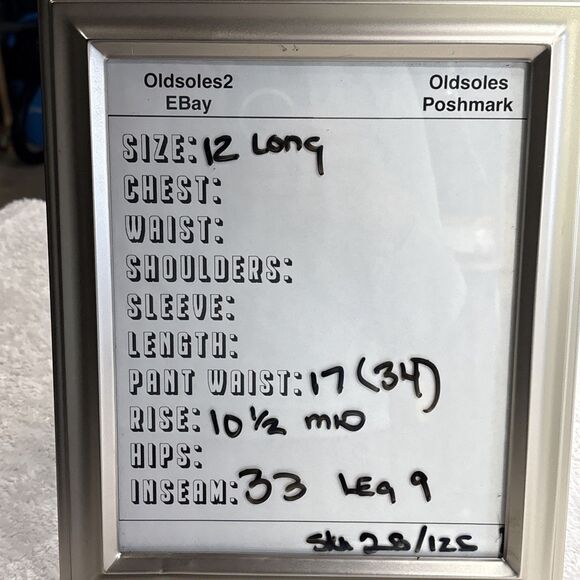 Oldsoles2 Oldsoles
EBay Poshmark
SIZE: 12 Long
CHEST:
WAIST:
SHOULDERS:
SLEEVE:
LENGTH:
PANT WAIST: 17 (34)
RISE: 10 1/2 mid
HIPS:
INSEAM: 33 Leg 9
Sku 28/125